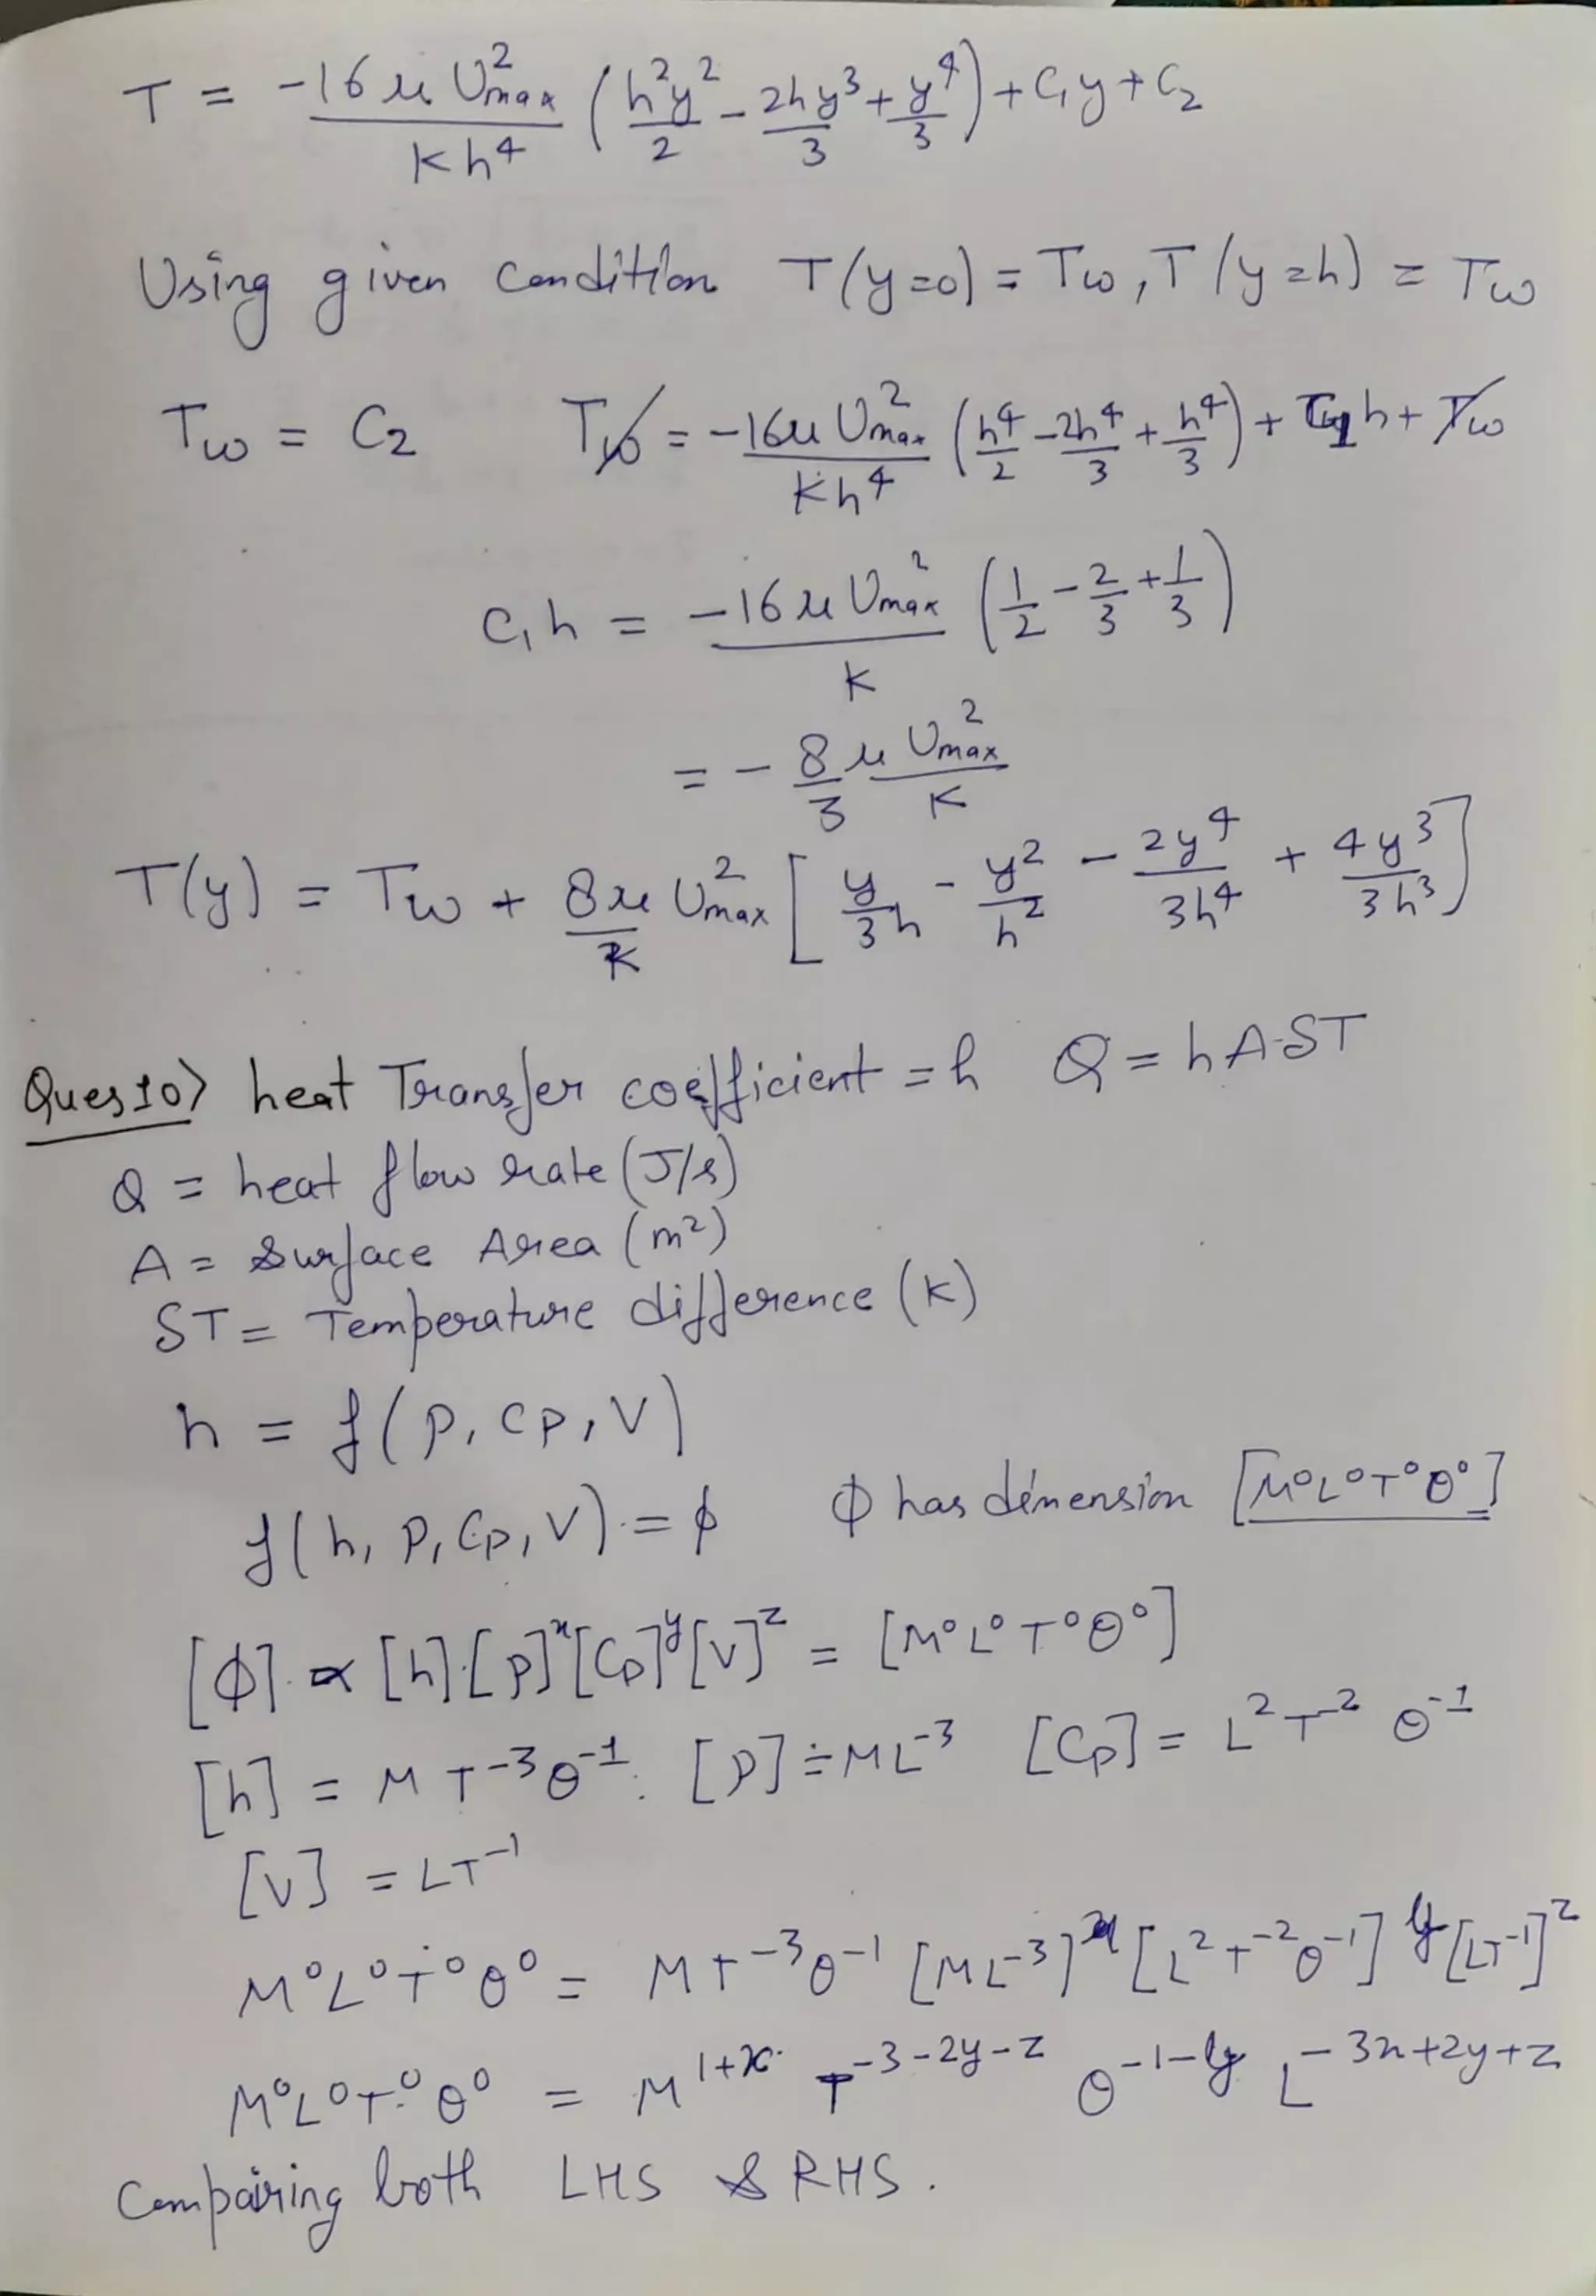 T = -16 μ U²max / K h⁴ ( h²y²/2 - 2hy³/3 + y⁴/3 ) + C₁y + C₂
Using given condition T(y=0) = Tw, T(y=h) = Tw
Tw = C₂ Tw = -16μ U²max / Kh⁴ ( h⁴/2 - 2h⁴/3 + h⁴/3 ) + C₁h + Tw
C₁h = -16 μ U²max / K ( 1/2 - 2/3 + 1/3 )
= - 8/3 μ U²max / K
T(y) = Tw + 8μ/K U²max [ y/3h - y²/h² - 2y⁴/3h⁴ + 4y³/3h³ ]
Ques 10> heat Transfer coefficient = h Q = hA·ST
Q = heat flow rate (J/s)
A = Surface Area (m²)
ST = Temperature difference (K)
h = f(P, CP, V)
f(h, P, Cp, V) = ϕ ϕ has dimension [M⁰L⁰T⁰θ⁰]
[ϕ] ∝ [h]·[P]ˣ[Cp]ʸ[V]ᶻ = [M⁰L⁰T⁰θ⁰]
[h] = M T⁻³θ⁻¹ [P] = ML⁻³ [Cp] = L²T⁻² θ⁻¹
[V] = LT⁻¹
M⁰L⁰T⁰θ⁰ = M T⁻³θ⁻¹ [ML⁻³]ˣ [L²T⁻²θ⁻¹]ʸ [LT⁻¹]ᶻ
M⁰L⁰T⁰θ⁰ = M^(1+x) T^(-3-2y-z) θ^(-1-y) L^(-3x+2y+z)
Compairing both LHS & RHS.